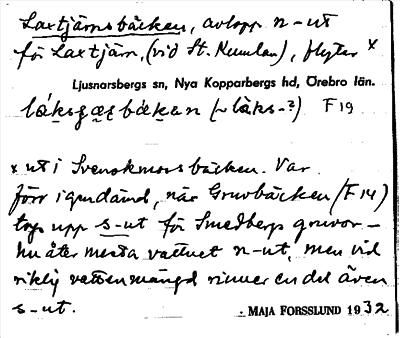 Laxtjärnsbäcken, avlopp n-ut
för Laxtjärn, (vid St. Kumlan), flyter x
Ljusnarsbergs sn, Nya Kopparbergs hd, Örebro län.
(~ làks-?) F19
x ut i Svenskmossbäcken. Var
förr igendämd, när Gruvbäcken (F14)
togs upp s-ut för Smedbergsgruvor –
nu åter mesta vattnet n-ut, men vid
riklig vattenmängd rinner en del även
s-ut. . MAJA FORSSLUND 1932